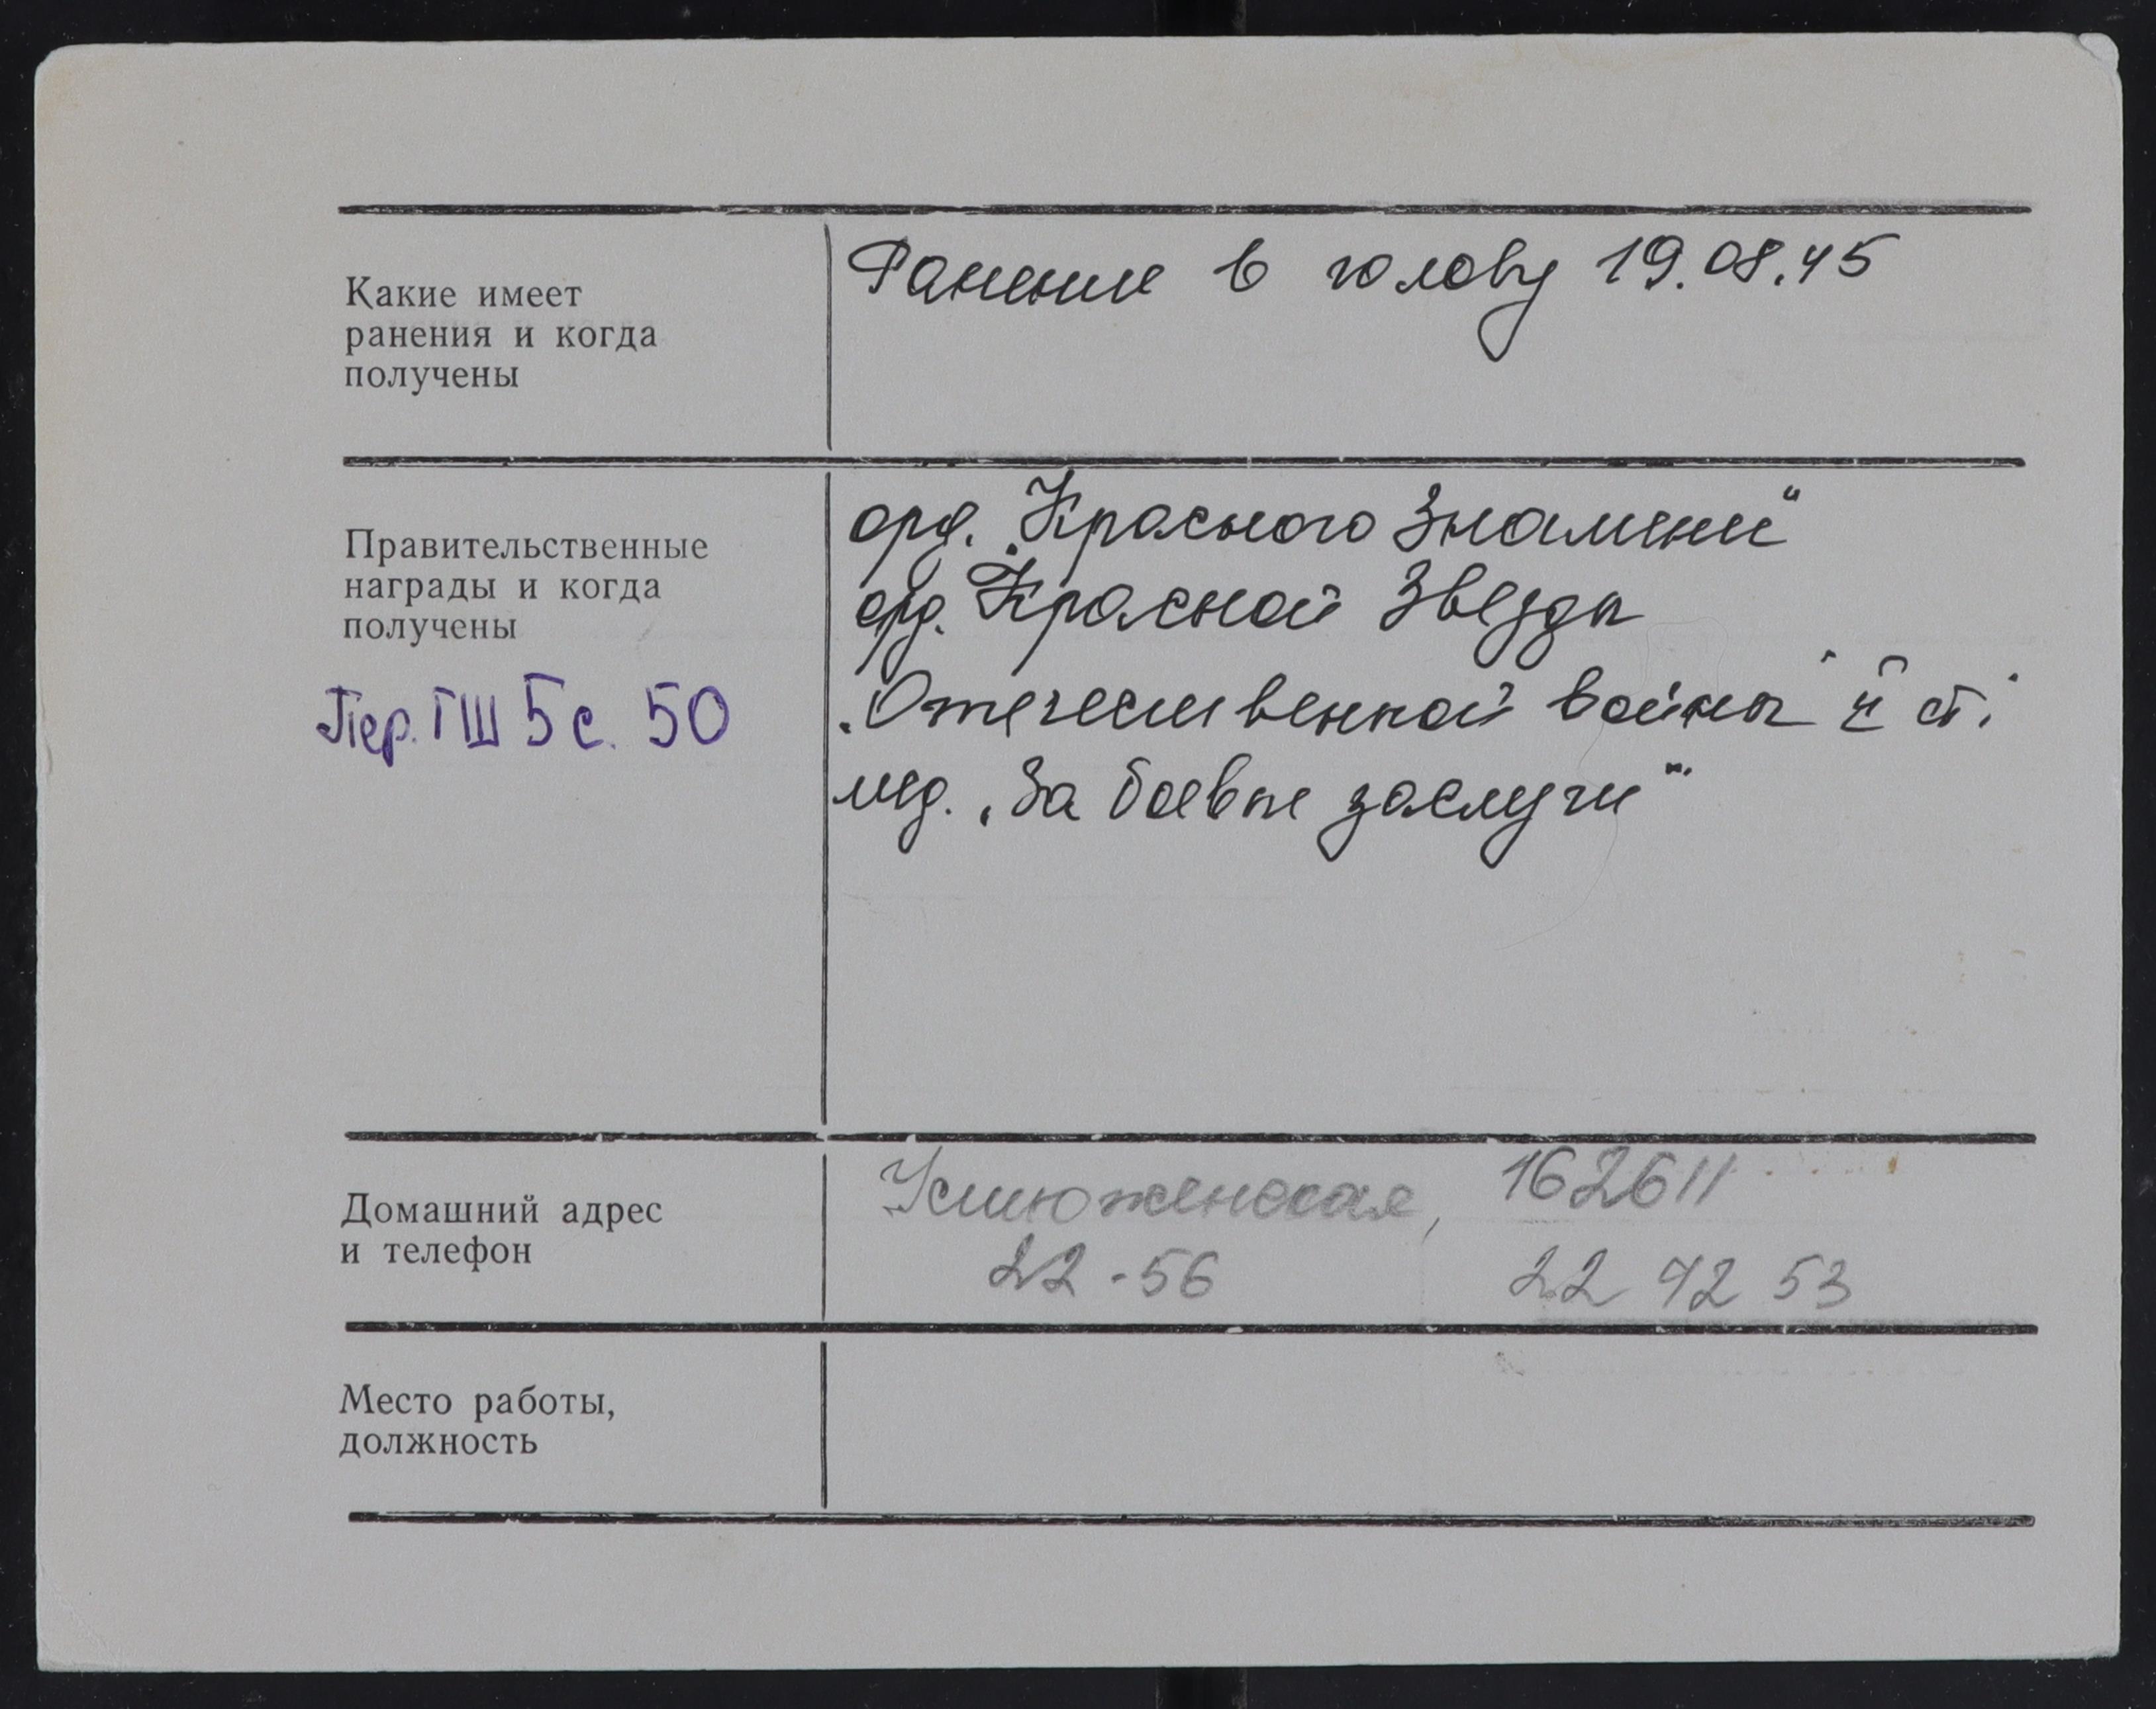 Какие имеет
ранения и когда
получены
Ранение в голову 19.08.45
Правительственные
награды и когда
получены
Пер. ГШ 5 с. 50
орд. „Красного Знамени“
орд. Красной Звезды
„Отечественной войны“ ст.
мед. „За боевые заслуги“
Домашний адрес
и телефон
Устюженская, 162611
22-56 22 42 53
Место работы,
должность